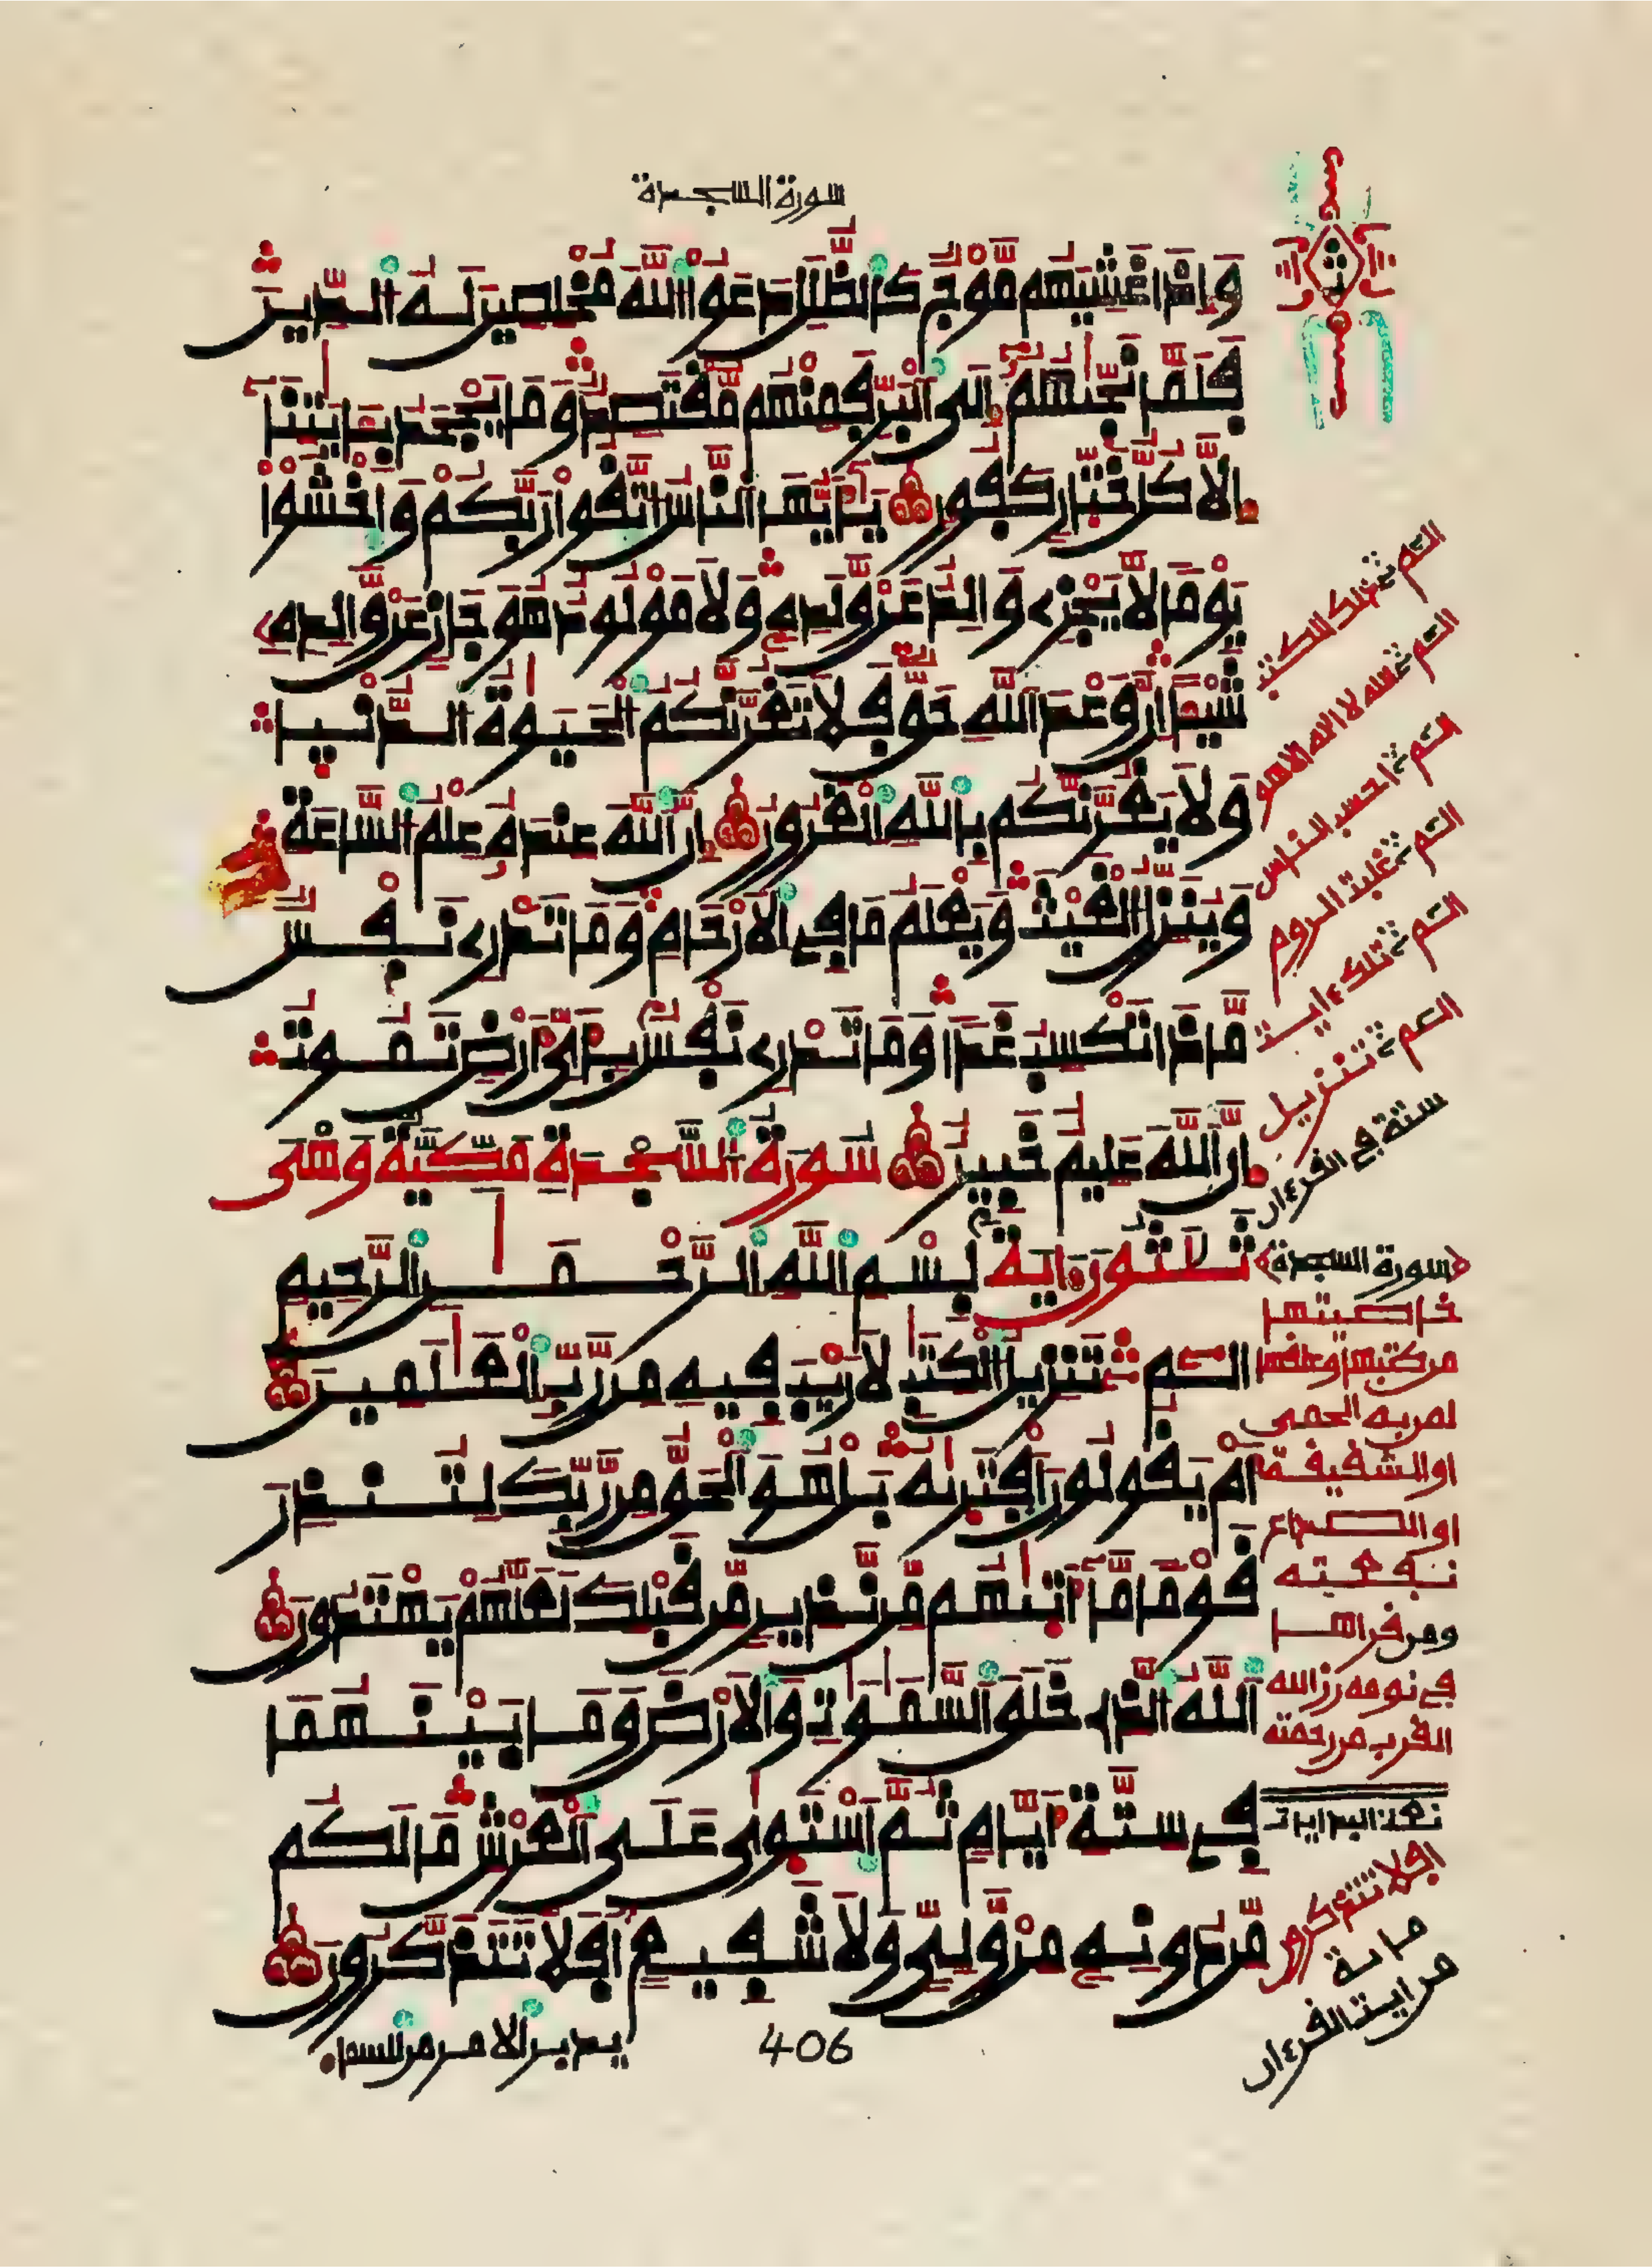 سورة السجدة
وَإِذَا غَشِيَهُم مَّوْجٌ كَالظُّلَلِ دَعَوُا اللَّهَ مُخْلِصِينَ لَهُ الدِّينَ
فَلَمَّا نَجَّيٰهُمْ إِلَى الْبَرِّ فَمِنْهُم مُّقْتَصِدٌ وَمَا يَجْحَدُ بِـَٔايَٰتِنَا
إِلَّا كُلُّ خَتَّارٍ كَفُورٍ يَٰأَيُّهَا النَّاسُ اتَّقُوا رَبَّكُمْ وَاخْشَوْا
يَوْمًا لَّا يَجْزِي وَالِدٌ عَن وَلَدِهِ وَلَا مَوْلُودٌ هُوَ جَازٍ عَن وَالِدِهِ
شَيْـًٔا إِنَّ وَعْدَ اللَّهِ حَقٌّ فَلَا تَغُرَّنَّكُمُ الْحَيَوٰةُ الدُّنْيَا
وَلَا يَغُرَّنَّكُم بِاللَّهِ الْغَرُورُ إِنَّ اللَّهَ عِندَهُ عِلْمُ السَّاعَةِ
وَيُنَزِّلُ الْغَيْثَ وَيَعْلَمُ مَا فِي الْأَرْحَامِ وَمَا تَدْرِي نَفْسٌ
مَّاذَا تَكْسِبُ غَدًا وَمَا تَدْرِي نَفْسٌ بِأَيِّ أَرْضٍ تَمُوتُ
إِنَّ اللَّهَ عَلِيمٌ خَبِيرٌ سُورَةُ السَّجْدَةِ مَكِّيَّةٌ وَهْيَ
ثَلَٰثُونَ ءَايَةً بِسْمِ اللَّهِ الرَّحْمَٰنِ الرَّحِيمِ
الٓمٓ تَنزِيلُ الْكِتَٰبِ لَا رَيْبَ فِيهِ مِن رَّبِّ الْعَٰلَمِينَ
أَمْ يَقُولُونَ افْتَرَىٰهُ بَلْ هُوَ الْحَقُّ مِن رَّبِّكَ لِتُنذِرَ
قَوْمًا مَّا أَتَىٰهُم مِّن نَّذِيرٍ مِّن قَبْلِكَ لَعَلَّهُمْ يَهْتَدُونَ
اللَّهُ الَّذِي خَلَقَ السَّمَٰوَٰتِ وَالْأَرْضَ وَمَا بَيْنَهُمَا
فِي سِتَّةِ أَيَّامٍ ثُمَّ اسْتَوَىٰ عَلَى الْعَرْشِ مَا لَكُم
مِّن دُونِهِ مِن وَلِيٍّ وَلَا شَفِيعٍ أَفَلَا تَتَذَكَّرُونَ
يدبر الامر من السما
406
الم ذلك الكتب
الم الله لا اله الا هو
الم احسب الناس
الم غلبت الروم
الم تلك ءايت
الم تنزيل
ستة في القرءان
سورة السجدة
خاصيتها
من كتبها وعلقها
لمن به الحمى
او الشقيقة
او الصداع
نفعته
ومن قراها
في نومه رزق الله
القرب من رحمته
افلا تتذكرون
من ايت القرءان